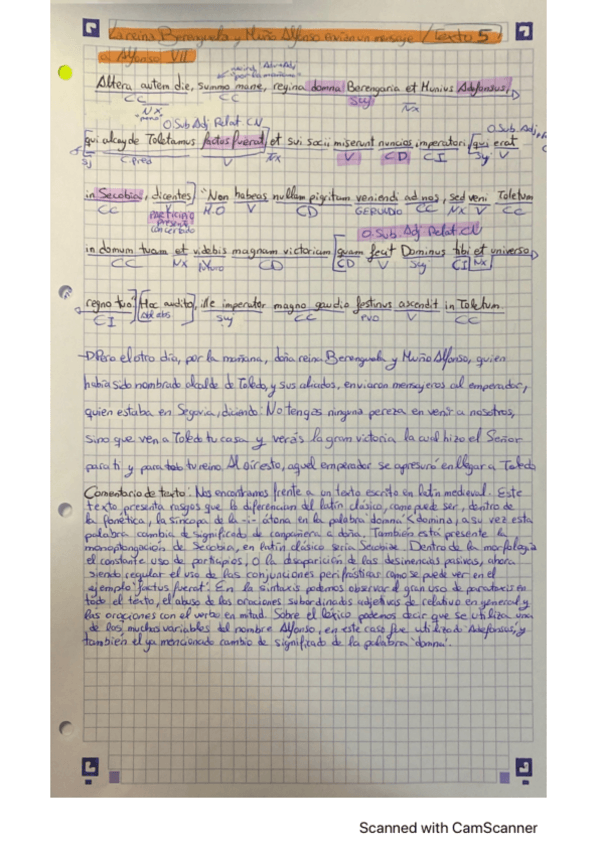 La reina Berenguela y Muño Alfonso envían un mensaje / Texto 5
a Alfonso VII
"por la mañana"
Altera autem die, summo mane, regina domna Berengaria et Munius Adefonsus,
CC CC Suj Nx
NX
"pero"
O.Sub.Adj.Relat.CN O.Sub.Adj.
[qui alcayde Toletanus factus fuerat] et sui socii miserunt nuncios imperatori, [qui erat
Sj C.Pred V Nx V CD CI Suj V
in Secobia, dicentes] "Non habeas nullam pigritam veniendi ad nos, sed veni Toletum
CC V M.O V CD GERUNDIO CC NX V CC
PARTICIPIO
presente
concertado
O.Sub.Adj.Relat.CN
in domum tuam et videbis magnam victoriam [quam fecit Dominus tibi et universo
CC NX Vfuturo CD CD V Suj CI NX
regno tuo" [Hoc audito], ille imperator magno gaudio festinus ascendit in Toletum
CI Abl abs Suj CC PVO V CC
→ Pero el otro día, por la mañana, doña reina Berenguela y Muño Alfonso, quien
había sido nombrado alcalde de Toledo, y sus aliados, enviaron mensajeros al emperador,
quien estaba en Segovia, diciendo: No tengas ninguna pereza en venir a nosotros,
sino que ven a Toledo tu casa y verás la gran victoria la cual hizo el Señor
para ti y para todo tu reino. Al oír esto, aquel emperador se apresuró en llegar a Toledo
Comentario de texto: Nos encontramos frente a un texto escrito en latín medieval. Este
texto presenta rasgos que lo diferencian del latín clásico, como puede ser, dentro de
la fonética, la síncopa de la -i- átona en la palabra 'domna' < domina, a su vez esta
palabra cambia de significado de compañera a doña. También está presente la
monoptongación de Secobia, en latín clásico sería Secobiae. Dentro de la morfología
el constante uso de participios, o la disaparición de las desinencias pasivas, ahora
siendo regular el uso de las conjunciones perifrásticas como se puede ver en el
ejemplo 'factus fuerat'. En la sintaxis podemos observar el gran uso de parataxis en
todo el texto, el abuso de las oraciones subordinadas adjetivas de relativo en general y
las oraciones con el verbo en mitad. Sobre el léxico podemos decir que se utiliza una
de las muchas variables del nombre Alfonso, en este caso fue utilizado 'Adefonsus', y
también el ya mencionado cambio de significado de la palabra 'domna'.
Scanned with CamScanner